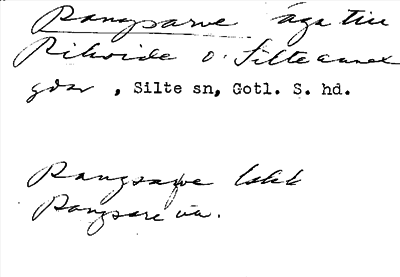 Rangsarve äga till
Rikvide o. Silte annex
gdar , Silte sn, Gotl. S. hd.
Rangsarve
Rangsare